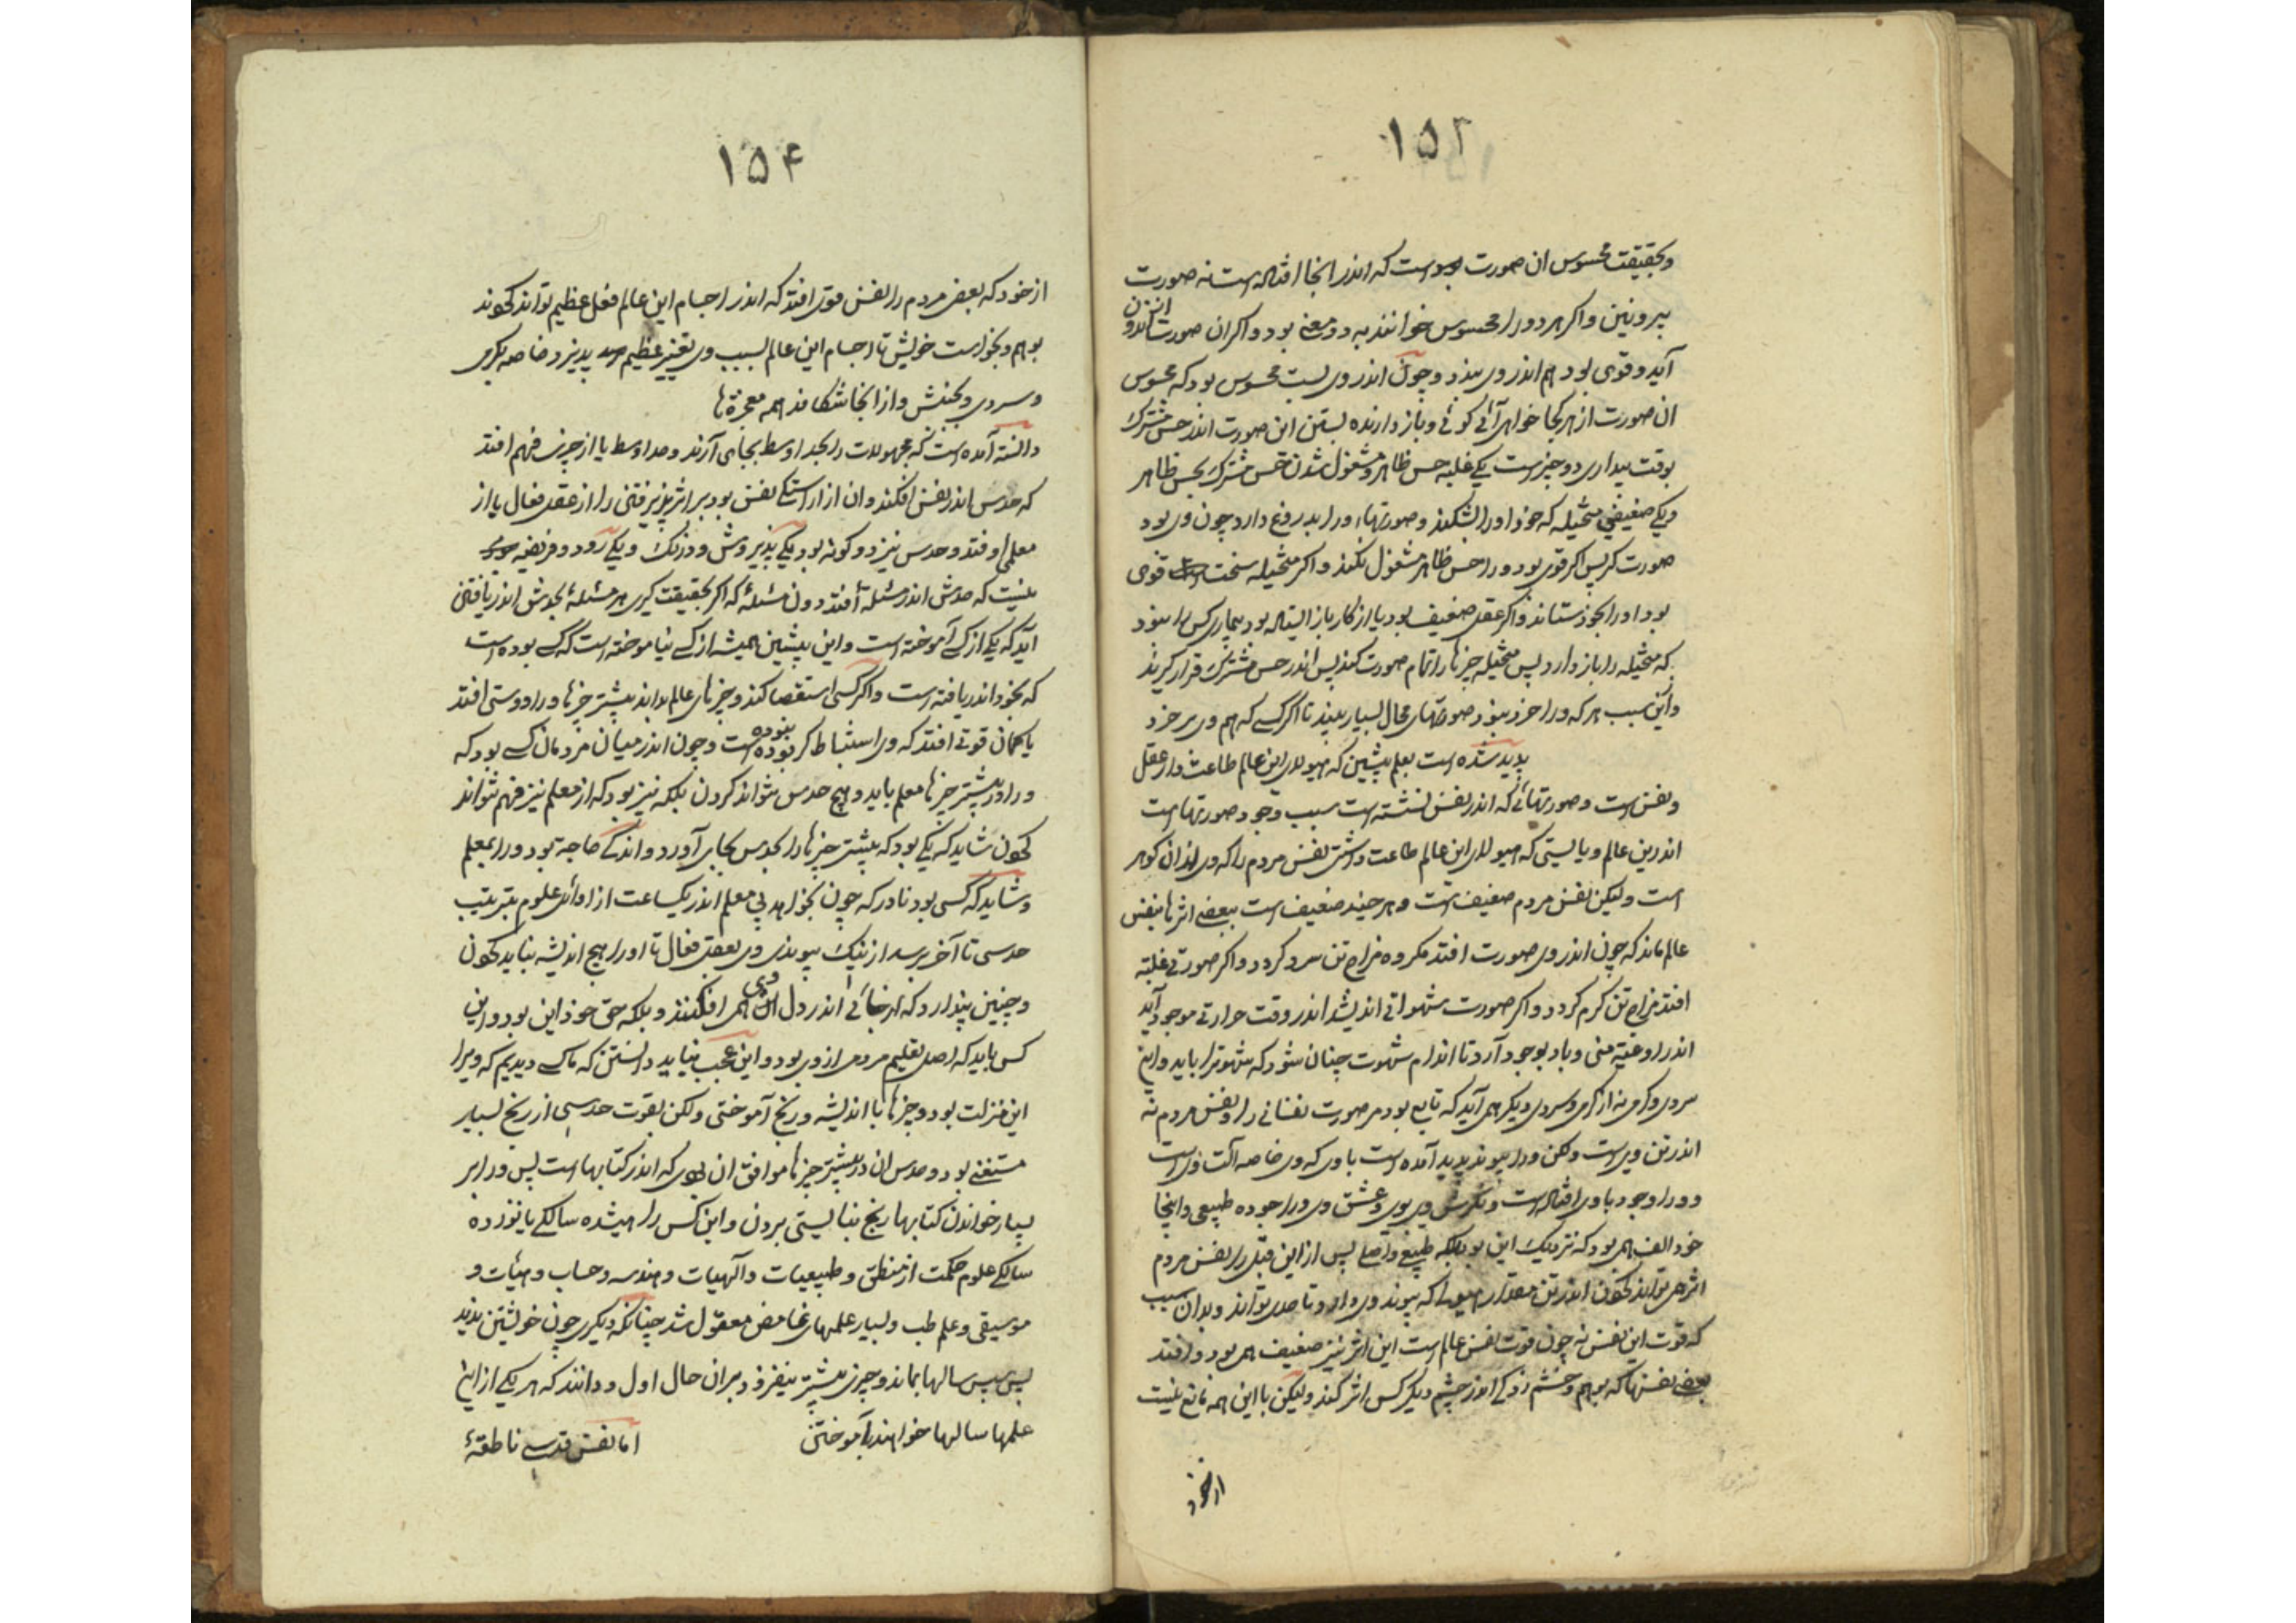 ۱۵۲
و بحقیقت محسوس ان صورت بود است که اندر انجا افتاده است نه صورت
بیرونین و اکر هر دو را محسوس خوانند به دو معنی بود و اکر ان صورت از اندرون
آید و قوی بود هم اندر وی بیند و چون اندر وی بست محسوس بود که محسوس
ان صورت از هر کجا خواهی آئی کوئی و باز دارنده بستن این صورت اندر حس مشترک
بوقت بیداری دو چیز است یکی غلبه حس ظاهر و مشغول شدن حس مشترک بحس ظاهر
و یکی ضعیفی متخیله که خرد اورا بشکند و صورتهاء ورا بدروغ دارد چون وی بود
صورت کر پس اکر قوی بود ورا حس ظاهر مشغول نکند و اکر متخیله سخت قوی
بود اورا بخود ستاند و اکر عقل ضعیف بود یا از کار باز ایستاده بود بیماری کس را بنود
که متخیله را باز دارد پس متخیله چیزها را تمام صورت کند پس اندر حس مشترک قرار کیرند
و این سبب هر که ورا خرد بنود صورتهای محال بسیار بیند تا اکر کسی که هم وی بی خرد
پدید شده است بعلم پیشین که هیولای این عالم طاعت دار عقل
و نفس است و صورتهائی که اندر نفس نشسته است سبب وجود صورتها است
اندرین عالم و بایستی که هیولای این عالم طاعت داشتی نفس مردم را که وی از ان کوهر
است ولیکن نفس مردم ضعیف است و هر چند ضعیف است ببعضی اثرها بنفس
عالم ماند که چون اندر وی صورت افتد مکروه مزاج تن سرد کردد و اکر صورتی غلبه
افتد مزاج تن کرم کردد و اکر صورت شهوانی اندیشد اندر وقت حرارتی موجود آید
اندر اوعیه منی و باد بوجود آرد تا اندام شهوت چنان شود که شهوترا باید و این
سردی و کرمی نه از کرمی و سردی دیکر همی آید که تابع بود مر صورت نفسانی را و نفس مردم نه
اندر تن وی است ولکن ورا پیوند پدید آمده است با وی که وی خاصه آلت وی است
و ورا وجود با وی افتاده است و نکرش وی بوی و عشق وی ورا جوده طبیعی و اینجا
خود الف همی بود که نزدیک این بود بلکه طبیعی و اصلی پس از این قبل را نفس مردم
اثر همی تواند کحون اندر تن مقدار هیولی که پیوند وی دارد تا صدر تواند و بدان سبب
که قوت این نفس نه چون قوت نفس عالم است این اثر نیز ضعیف همی بود و افتد
بعضی نفسها که بوهم و چشم زدکی اندر چشم دیکر کس اثر کند ولیکن با این همه مانع نیست
ازخود
۱۵۴
از خود که بعضی مردم را نفس قوی افتد که اندر اجسام این عالم فعل عظیم تواند کحوند
بوهم و بخواست خویش تا اجسام این عالم بسبب وی تغییر عظیم پدیزد خاصه بکرمی
و سردی و بجنبش و از انجا شکافد همه معجزةها
دانسته آمده است که مجهولات را بحد اوسط بجای آرند و حد اوسط یا از چیزی فهم افتد
که حدس اندر نفس افکند و ان از اراستکی نفس بود بر اثر پزیرفتنی را از عقل فعال یا از
معلمی اوفتد و حدس نیز دو کونه بود یکی پذیروش و درنک و یکی زود و فریضه
نیست که حدس اندر مسئله افتد دون مسئله که اکر بحقیقت کیری هر مسئلۀ بحدس اندر یافتنی
آید که یکی از کسی آموخته است و این پیشین همیشه از کسی نیاموخته است که کسی بوده است
که بخود اندریافته است و اکر کسی استقصا کند و چیزهای عالم بداند بیشتر چیزها ورا دوستی افتد
یا کمان قوتی افتد که وی استنباط کر نبوده است و چون اندر میان مردمان کسی بود که
ورا در بیشتر چیزها معلم باید و هیچ حدس نتواند کردن بلکه نیز بود که از معلم نیز فهم نتواند
کحون شاید که یکی بود که بیشتر چیزها را بحدس بجای آورد و اندکی حاجة بود ورا بمعلم
و شاید که کسی بود نادر که چون بخواهد بی معلم اندر یکساعت از اوائل علوم بترتیب
حدسی تا آخر برسد از نیک پیوندی وی بعقل فعال تا اورا هیچ اندیشه نباید کحون
و چنین پندارد که از جائی اندر دل وی همی افکنند و بلکه حق خود این بود و این
کس باید که اصل تعلیم مردمی از وی بود و این عجب نباید دانستن که ما کسی دیدیم که ویرا
این منزلت بود و چیزها با اندیشه و رنج آموختی ولکن بقوت حدسی از رنج بسیار
مستغنی بود و حدس ان در بیشتر چیزها موافق ان بودی که اندر کتابها است پس ورا بر
بسیار خواندن کتابها رنج نبایستی بردن و این کس را بهیشده سالکی یا نوزده
سالکی علوم حکمت از منطق و طبیعیات و آلهیات و هندسه و حساب و هیئات و
موسیقی و علم طب و بسیار علمهای غامض معقول شد چنانکه دیکری چون خویشتن ندید
پس سپس سالها بماند و چیزی بیشتر نیفزود بران حال اول و دانند که هر یکی از این
علمها سالها خواهند آموختن اما نفس قدسی ناطقۀ